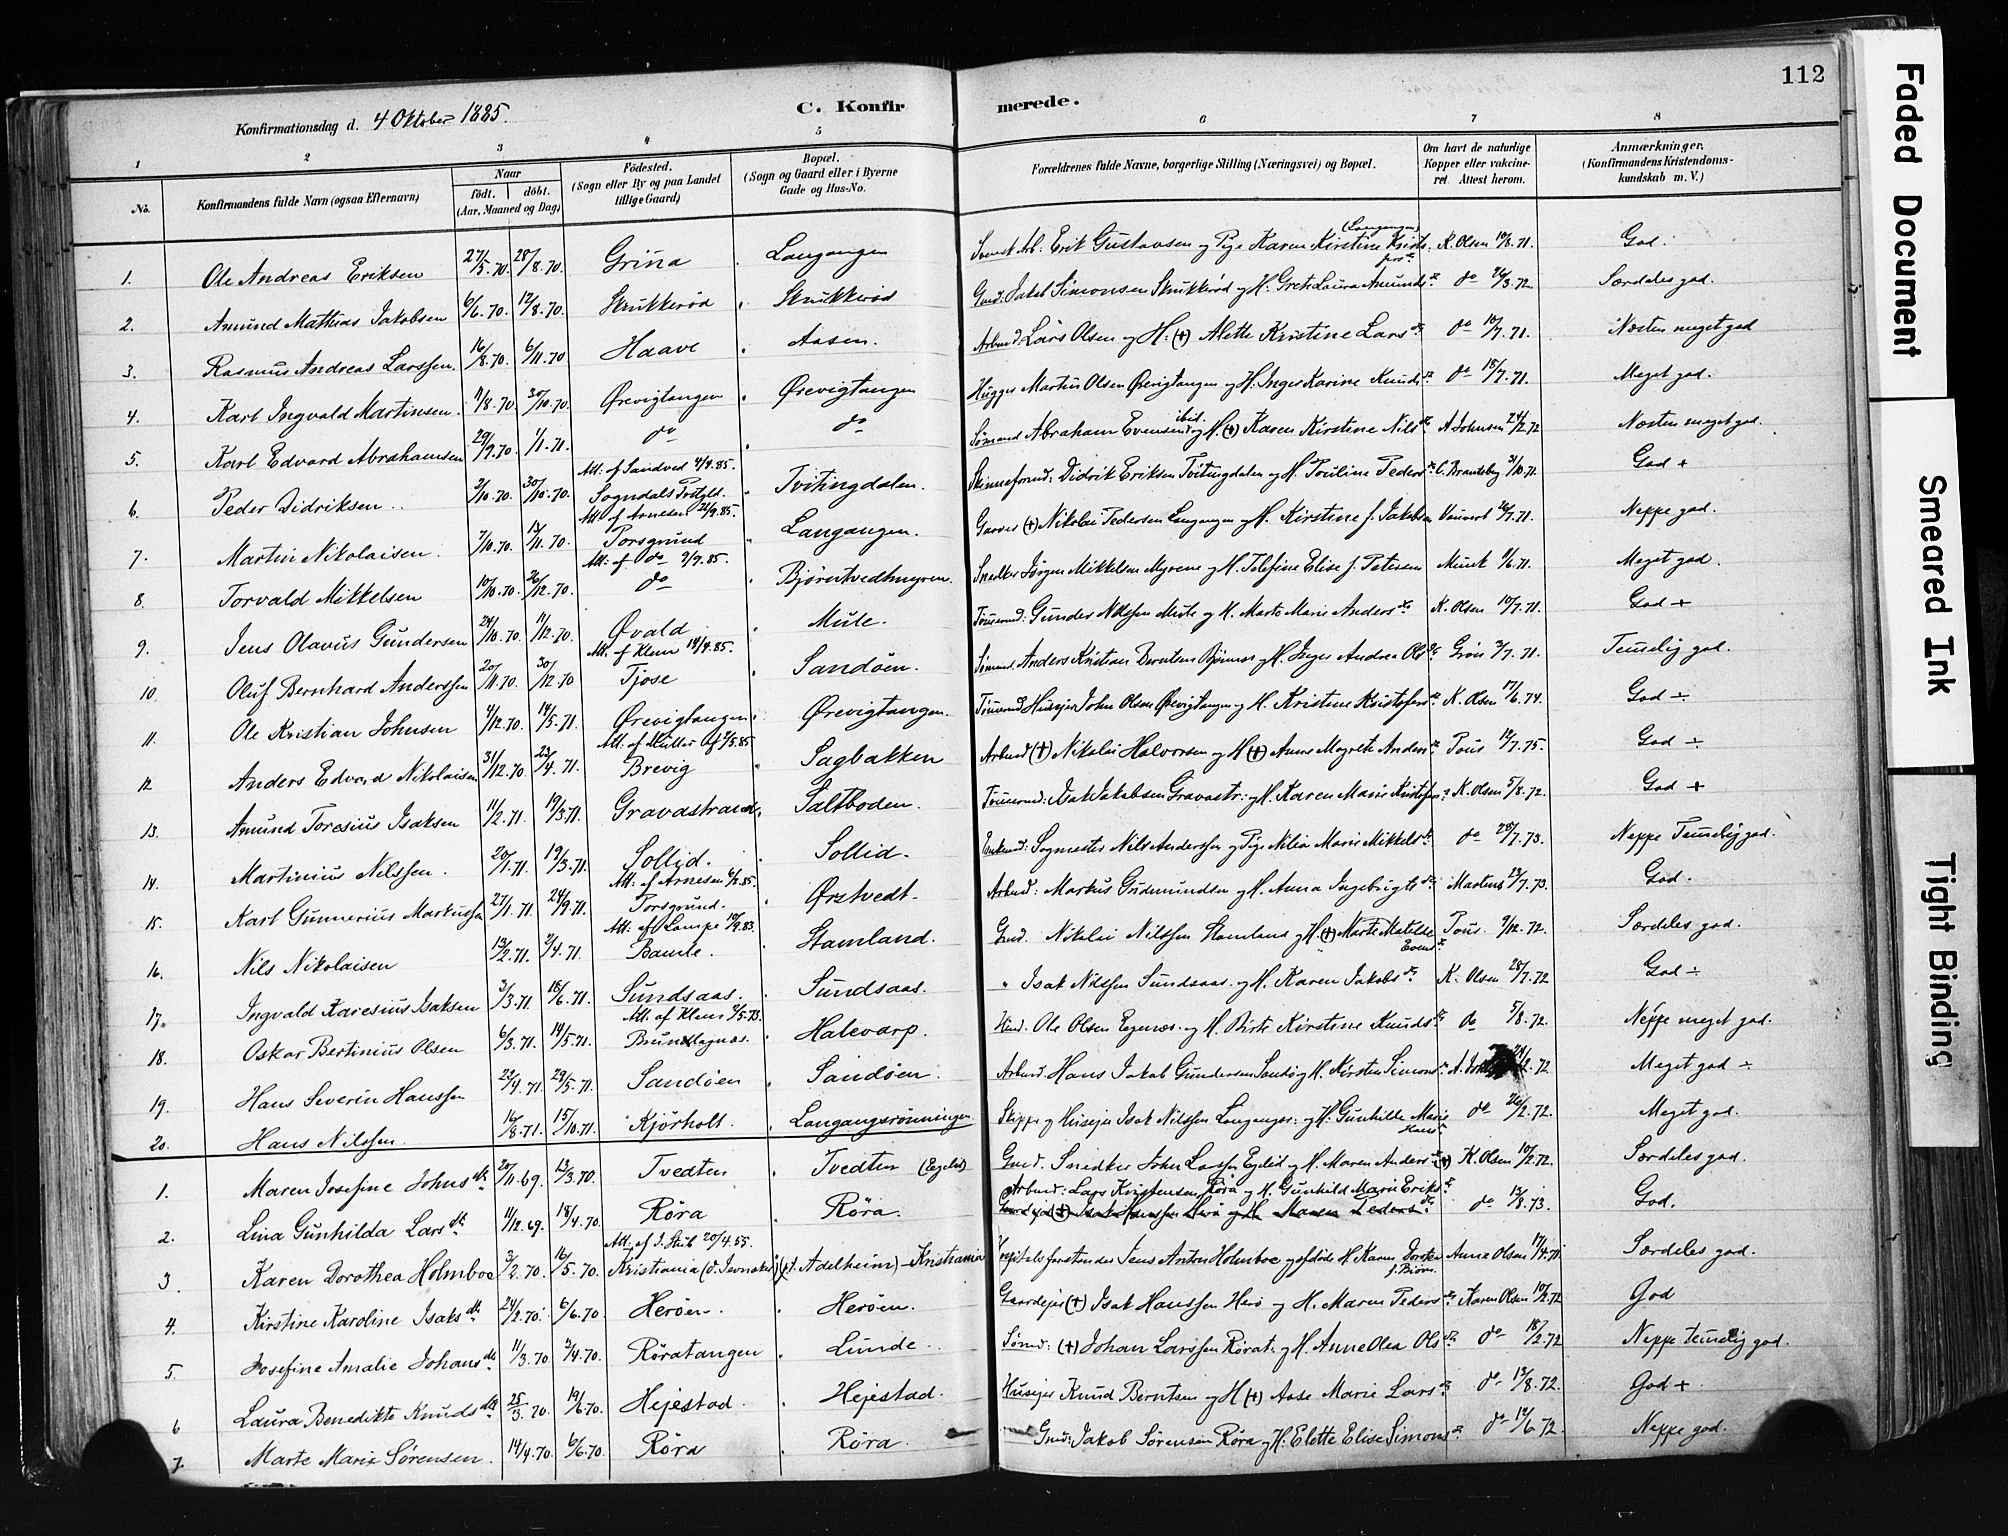 112
C. Konfirmerede.
Konfirmationsdag d. 4 Oktober 1885.
1 2 3 4 5 6 7 8
No. Konfirmandens fulde Navn (ogsaa Efternavn) Naar født. døbt. (Aar, Maaned og Dag) Fødested. (Sogn eller By og paa Landet tillige Gaard) Bopæl. (Sogn og Gaard eller i Byerne Gade og Hus-No. Forældrenes fulde Navne, borgerlige Stilling (Næringsvei) og Bopæl. Om havt de naturlige Kopper eller vakcineret. Attest herom. Anmærkninger. (Konfirmandens Kristendomskundskab m. V.)
1. Ole Andreas Eriksen 27/5.70. 28/8.70. Grina Langangen Svensk Arb: Erik Gustavsen og Pige Karen Kirstine (Langangen) K. Olsen 10/8.71. God.
2. Amund Mathias Jakobsen 6/6.70. 12/8.70. Skrukkerød Skrukkerød Gmd: Jakob Simonsen Skrukkerød og H. Grete Laura Amunds dr do 26/3.72 Særdeles god.
3. Rasmus Andreas Larssen. 16/8.70. 6/11.70 Haave Aasen. Arbmd: Lars Olsen og H: (+) Alette Kristine Lars dr do 10/7.71. Næsten meget god
4. Karl Ingvald Martinsen. 11/8.70. 30/10.70. Ørevigtangen Ørevigtangen Hugger Martin Olsen Ørevigtangen og H. Inger Karine Knuds dr do 18/7.71. Meget god.
5. Karl Edvard Abrahamsen 29/9.70. 1/1.71. do do Sømand Abraham Evensen ibid. og H. (+) Karen Kirstine Nils dr A Johnsen 24/2.72 Næsten meget god.
6. Peder Didriksen 3/10.70. 30/10.70. Att. af Sandved 4/9.85. Sogndals Prstgld. Tvitingdalen. Skinneformd: Didrik Eriksen Tvitingdalen og H. Pouline Peders dr 31/10.71. God +
7. Martin Nikolaisen. 7/10.70. 13/11.70. Att. af Arnesen 21/9.85. Porsgrund Langangen. Garver (+) Nikolai Pedersen Langangen og H. Kirstine f. Jakobsen 26/7.71. Neppe god.
8. Torvald Mikkelsen 10/10.70. 26/12.70. Att: af do 2/9.85. do Bjørntvedtmyren. Snedker Jørgen Mikkelsen Myrene og H. Tolefine Elise f. Petersen Munk 9/6.71. Meget god.
9. Jens Olavus Gundersen 24/10.70. 11/12.70. Øvald Mule. Tømmermd: Gunder Nilssen Mule og H. Marte Marie Anders dr K. Olsen 10/7.71. God +
10. Oluf Bernhard Anderssen 20/11.70. 30/12.70 Att. af Klem 14/4.85. Tjose Sandøen. Sømd. Anders Kristian Berntsen og H. Inger Andrea Ols dr Grøn 3/7.71. Temelig god.
11. Ole Kristian Johnsen 4/12.70. 14/5.71. Ørevigtangen. Ørevigtangen. Tømmermd Husejer John Olsen Ørevigtangen og H. Kristine Kristofers dr K. Olsen 17/6.74. God ÷
12 Anders Edvard Nikolaisen 31/12.70. 23/4.71. Brevig Sagbakken Arbmd (+) Nikolai Halvorsen og H (+) Anne Magrete Anders dr Pous 19/7.75. God ÷
13. Amund Toresius Isaksen 11/2.71. 19/3.71. Gravastranden Saltboden. Tømmermd: Isak Jakobsen Gravastr: og H. Karen Marie Kristofers dr K. Olsen 5/8.72. God +
14. Martinius Nilssen. 20/1.71. 19/3.71. Sollid. Sollid. Enkemd: Sagmester Nils Anderssen og Pige Nilia Marie Mikkels dr do 28/7.73. Neppe Temelig god.
15. Karl Gunnerius Markussen 27/1.71. 24/9.71. Att: af Arnesen 6/8.85. Porsgrund. Ørstvedt. Arbmd: Markus Gudmundsen og H. Anna Ingebrigts dr Martens 23/7.73. God.
16. Nils Nikolaisen 13/2.71. 2/4.71. Att: af Lampe 10/9.83. Bamle. Stamland. Gmd. Nikolai Nilssen Stamland og H. (+) Marte Matilde Evens dr Pous 9/12.72. Særdeles god.
17. Ingvald Karesius Isaksen 3/3.71. 18/6.71. Sundsaas. Sundsaas. " Isak Nilssen Sundsaas. og H. Karen Jakobs dr K. Olsen 28/7.72 God ÷
18. Oskar Bertinius Olsen 6/3.71. 14/5.71. Att. af Klem 2/5.73. Brunlagnæs. Halevarp. Ole Olsen og H. Birte Kirstine Knuds dr do 5/8.72. Neppe meget god.
19. Hans Severin Hanssen 22/4.71. 29/5.71. Sandøen Sandøen. Arbmd. Hans Jakob Gundersen Sandø og H. Kirsten Simons dr 24/2.72 Meget god ÷
20. Hans Nilssen. 16/8.71. 15/10.71. Kjørholt. Langangsrønningen Skipper og Husejer Isak Nilssen Langangsr: og H: Gunhilde Marie Hans dr do 26/2.72. Meget god.
1. Maren Josefine Johns dtr 20/11.69. 13/3.70. Tvedten Tvedten (Egelid) Gmd. Snedker John Larssen Egelid og H. Maren Anders dr (+) K. Olsen 10/2.72. Særdeles god.
2. Lina Gunhilda Lars dtr 11/12.69. 18/4.70. Røra Røra. Arbmd: Lars Kristensen Røra og H. Gunhild Marie Eriks dr do 13/8.73. God.
Gaardejer (+) Isak Hanssen Herø og H Maren Peders dr
3 Karen Dorothea Holmboe 3/2.70. 16/5.70. Kristiania (v. Jevnaker) (pt. Adelheim) - Kristiania Hospitalsforstander Jens Anton Holmboe og fødte H. Karen Dorthea Anne Olsen 17/4.71 Særdeles god.
4. Kirstine Karoline Isaks dtr 24/2.70. 6/6.70. Herøen. Herøen. Gaardejer (+) Isak Hanssen Herø og H. Maren Peders dr Karen Olsen 10/2.72 God
5. Josefine Amalie Johans dtr 11/3.70 3/4.70. Røratangen Lunde. Sømd: (+) Johan Larssen Rørat: og H. Anne Olea Ols dtr do 18/2.72 Neppe temelig god.
6 Laura Benedikte Knuds dtr 25/3.70. 19/6.70. Hejestad. Hejestad. Husejer Knud Berntsen og H (+) Aase Marie Lars dr do 13/8.72. God +
7. Marte Marie Sørensen. 14/4.70. 6/6.70. Røra Røra. Gmd: Jakob Sørensen Røra og H: Elette Elise Simons dr do 12/6.72. Neppe god.
Faded Document
Smeared Ink
Tight Binding